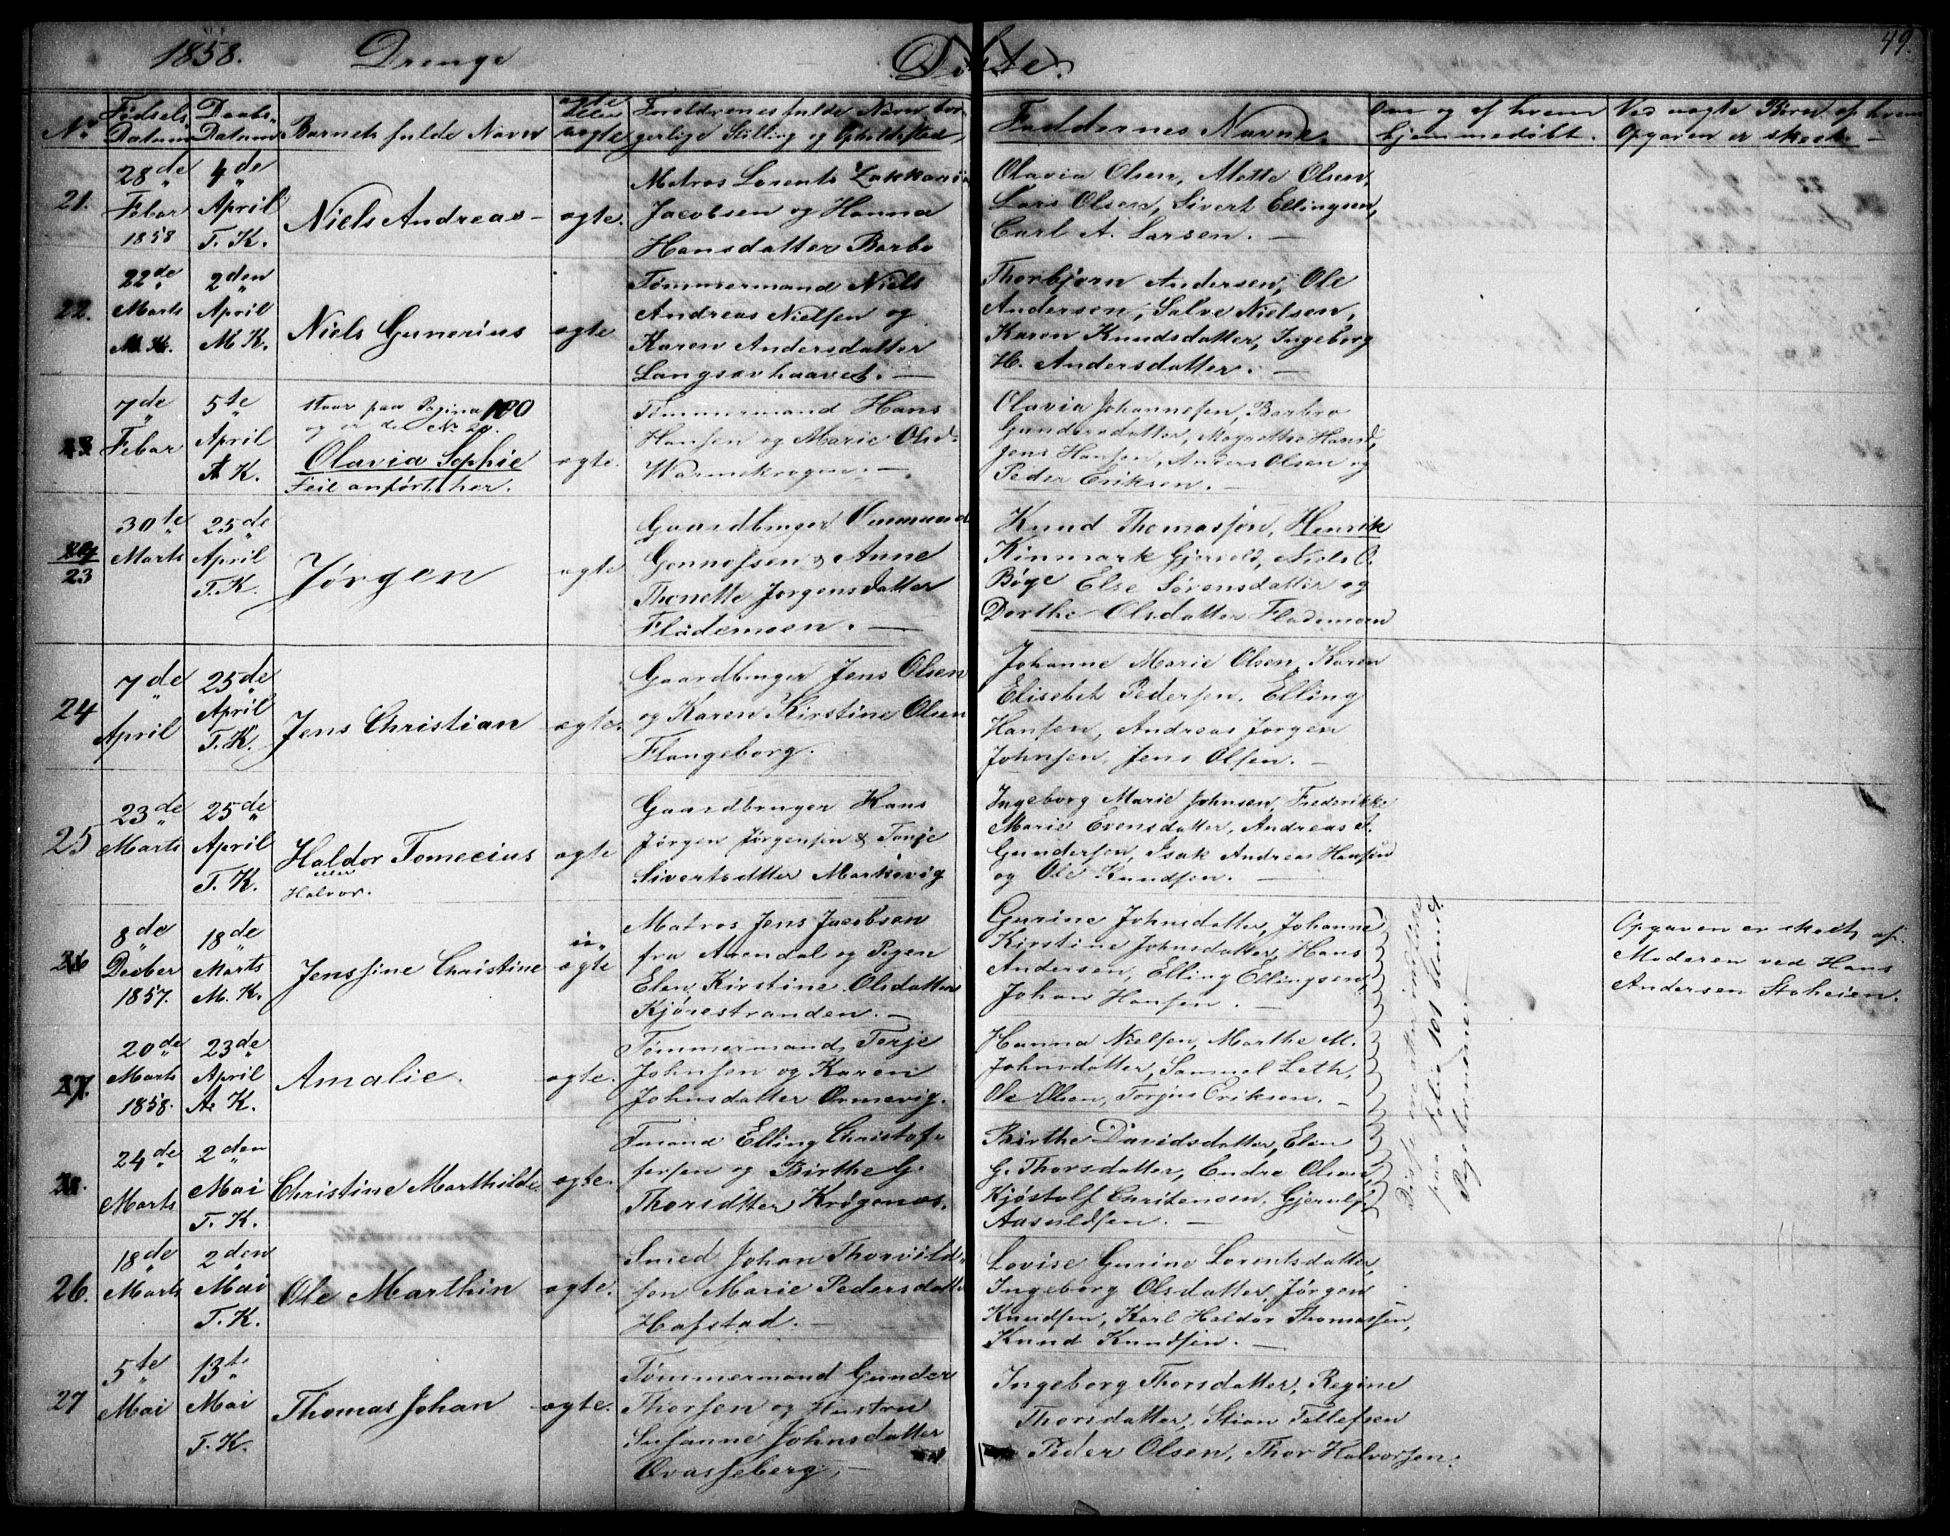 1858. Drenge Døbte. 49.
No Fødsels Datum Daabs Datum Barnets fulde Navn ægte eller uægte Forældrenes fulde Navn, borgerlige Stilling og Opholdssted, Faddernes Navne. Om og af hvem hjemmedøbt. Ved uægte Børn af hvem Opgaven er skeet.
21. 28de Febar 1858 4de April T. K. Niels Andreas ægte.
Matros Lorents Zakkarias
Jacobsen og Hanna
Hansdatter Barbo
Olavia Olsen, Mette Olsen,
Lars Olsen, Sivert Ellingsen,
Carl A. Larsen. —
22. 22de Marts 2den April M K. Niels Gunerius ægte
Tømmermand Niels
Andreas Nielsen og
Karen Andersdatter
Langsævhaavet. —
Thorbjørn Andersen, Ole
Andersen, Salve Nielsen,
Karen Knudsdatter, Ingeborg
H. Andersdatter. —
7de Febar 5te April A K.
staar paa Pagina 100
og er det No 20.
Olavia Sophie
Feil anført her.
ægte.
Tømmermand Hans
Hansen og Marie Olsd.
Warmekrogen. —
Olavia Johannesen, Barbro
Gundersdatter, Magrethe Hansd,
Jens Hansen, Anders Olsen og
Peder Eriksen. —
23 30te Marts 25de April T. K. Jørgen ægte
Gaardbruger
Anne
Thonette Jørgensdatter
Flademoen. —
Knud Thomassøn, Henrik
Kinmark Gjerveld, Niels O.
Bøge Else Sørensdatter og
Dorthe Olsdatter Flademoen
24 7de April 25de April T. K. Jens Christian ægte.
Gaardbruger Jens Olsen
og Karen Kirstine Olsen
Flangeborg.
Johanne Marie Olsen, Karen
Elisebet Pedersen, Elling
Hansen, Andreas Jørgen
Johnsen, Jens Olsen. —
25 23de Marts 25de April T. K. Haldor Tomecius
eller
Halvor.
ægte
Gaardbruger Hans
Jørgen Jørgensen & Tonje
Sivertsdtter Markevig
Ingeborg Marie Johnsen, Frederikke
Marie Evensdatter, Andreas A.
Gundersen, Isak Andreas Hansen
og Ole Knudsen. —
26 8de Deeber 1857. 18de Marts M. K. Jenssine Christine uægte
Matros Jens Jacobsen
fra Arendal og Pigen
Elen Kirstine Olsdatter
Kjørestranden. —
Gurine Johnsdatter, Johanne
Kirstine Johnsdatter, Hans
Andersen, Elling Ellingsen,
Johan Hansen. —
Opgaven er skeet af
Moderen ved Hans
Andersen Stoheien.
27. 20de Marts 1858. 23de April A. K. Amalie. ægte.
Tømmermand Terje
Johnsen og Karen
Johnsdatter Ormevig.
Hanna Nielsen, Marthe M.
Johnsdatter, Samuel Leth,
Ole Olsen, Torjus Eriksen. —
28. 24de Marts 2den Mai T. K. Christine Marthilde ægte.
Elling Christof-
fersen og Birthe G.
Thorsdtter Krøgenæs.
Birthe Davidsdatter, Elen
G. Thorsdatter, Endre Olsen,
Kjøstolf Christensen, Gjerulf
Aasuldsen. —
Disse ere
paa Folio 101 blandt
Pigebørnene. —
26. 18de Marts 2den Mai T. K. Ole Marthin ægte.
Smed Johan Thorvild-
sen Marie Pedersdatter
Hafstad. —
Lovise Gurine Lorentsdatter,
Ingeborg Olsdatter, Jørgen
Knudsen, Karl Haldor Thomassen,
Knud Knudsen. —
27 5te Mai 13te Mai T. K. Thomas Johan ægte.
Tømmermand Gunder
Thorsen og Hustru
Susanne Johnsdatter
Øvasseberg, —
Ingeborg Thorsdatter, Regine
Thorsdatter, Stian Tellefsen
Peder Olsen, Thor Halvorsen.